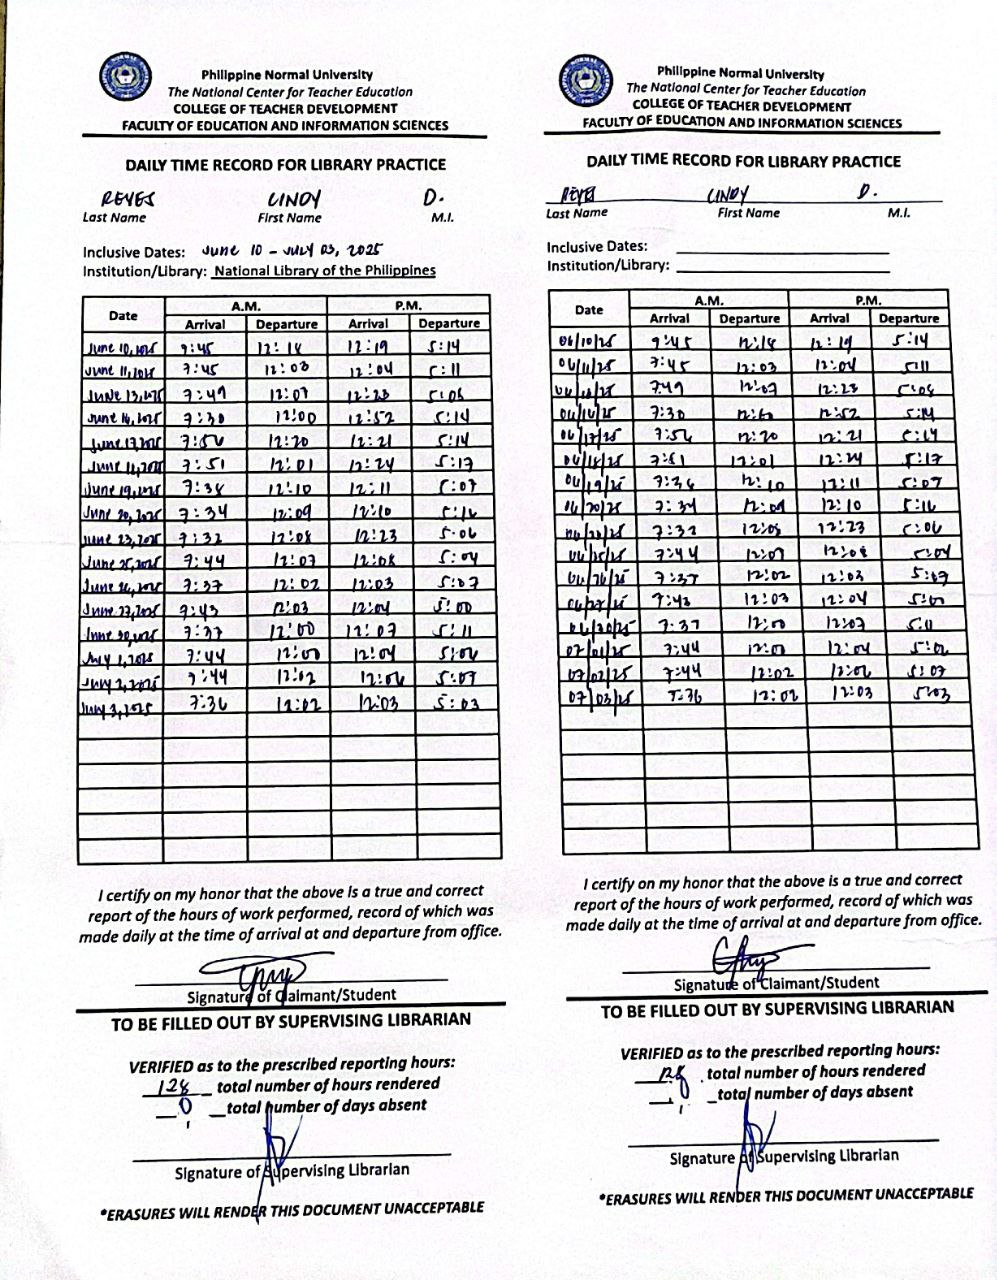 Philippine Normal University
The National Center for Teacher Education
COLLEGE OF TEACHER DEVELOPMENT
FACULTY OF EDUCATION AND INFORMATION SCIENCES
DAILY TIME RECORD FOR LIBRARY PRACTICE
REYES CINDY D.
Last Name First Name M.I.
Inclusive Dates: June 10 - July 03, 2025
Institution/Library: National Library of the Philippines
Date A.M. P.M.
Arrival Departure Arrival Departure
June 10, 2025 9:45 12:18 12:19 5:14
June 11, 2025 7:45 12:03 12:04 5:11
June 13, 2025 7:49 12:07 12:23 5:05
June 16, 2025 7:30 12:00 12:52 5:14
June 17, 2025 7:56 12:20 12:21 5:14
June 18, 2025 7:51 12:01 12:24 5:17
June 19, 2025 7:38 12:10 12:11 5:07
June 20, 2025 7:34 12:09 12:10 5:16
June 23, 2025 7:32 12:08 12:23 5:06
June 25, 2025 7:44 12:07 12:08 5:04
June 26, 2025 7:37 12:02 12:03 5:07
June 27, 2025 7:43 12:03 12:04 5:00
June 30, 2025 7:37 12:00 12:07 5:11
July 1, 2025 7:44 12:04 5:06
July 2, 2025 7:44 12:02 12:06 5:07
July 3, 2025 7:36 12:02 12:03 5:03
I certify on my honor that the above is a true and correct
report of the hours of work performed, record of which was
made daily at the time of arrival at and departure from office.
Signature of Claimant/Student
TO BE FILLED OUT BY SUPERVISING LIBRARIAN
VERIFIED as to the prescribed reporting hours:
128 total number of hours rendered
0 total number of days absent
Signature of Supervising Librarian
*ERASURES WILL RENDER THIS DOCUMENT UNACCEPTABLE
Philippine Normal University
The National Center for Teacher Education
COLLEGE OF TEACHER DEVELOPMENT
FACULTY OF EDUCATION AND INFORMATION SCIENCES
DAILY TIME RECORD FOR LIBRARY PRACTICE
REYES CINDY D.
Last Name First Name M.I.
Inclusive Dates:
Institution/Library:
Date A.M. P.M.
Arrival Departure Arrival Departure
06/10/25 9:45 12:18 12:19 5:14
06/11/25 7:45 12:03 12:04 5:11
7:49 12:07 12:23
06/16/25 7:30 12:52 5:14
06/17/25 7:56 12:20 12:21 5:14
06/18/25 7:51 12:01 12:24 5:17
06/19/25 7:38 12:10 12:11 5:07
06/20/25 7:34 12:09 12:10 5:16
7:32 12:08 12:23 5:06
06/25/25 7:44 12:07 12:08 5:04
06/26/25 7:37 12:02 12:03 5:07
06/27/25 7:43 12:03 12:04 5:00
06/30/25 7:37 12:00 12:07 5:11
07/01/25 7:44 12:04 5:06
07/02/25 7:44 12:02 12:06 5:07
07/03/25 7:36 12:02 12:03 5:03
I certify on my honor that the above is a true and correct
report of the hours of work performed, record of which was
made daily at the time of arrival at and departure from office.
Signature of Claimant/Student
TO BE FILLED OUT BY SUPERVISING LIBRARIAN
VERIFIED as to the prescribed reporting hours:
128 total number of hours rendered
total number of days absent
Signature of Supervising Librarian
*ERASURES WILL RENDER THIS DOCUMENT UNACCEPTABLE